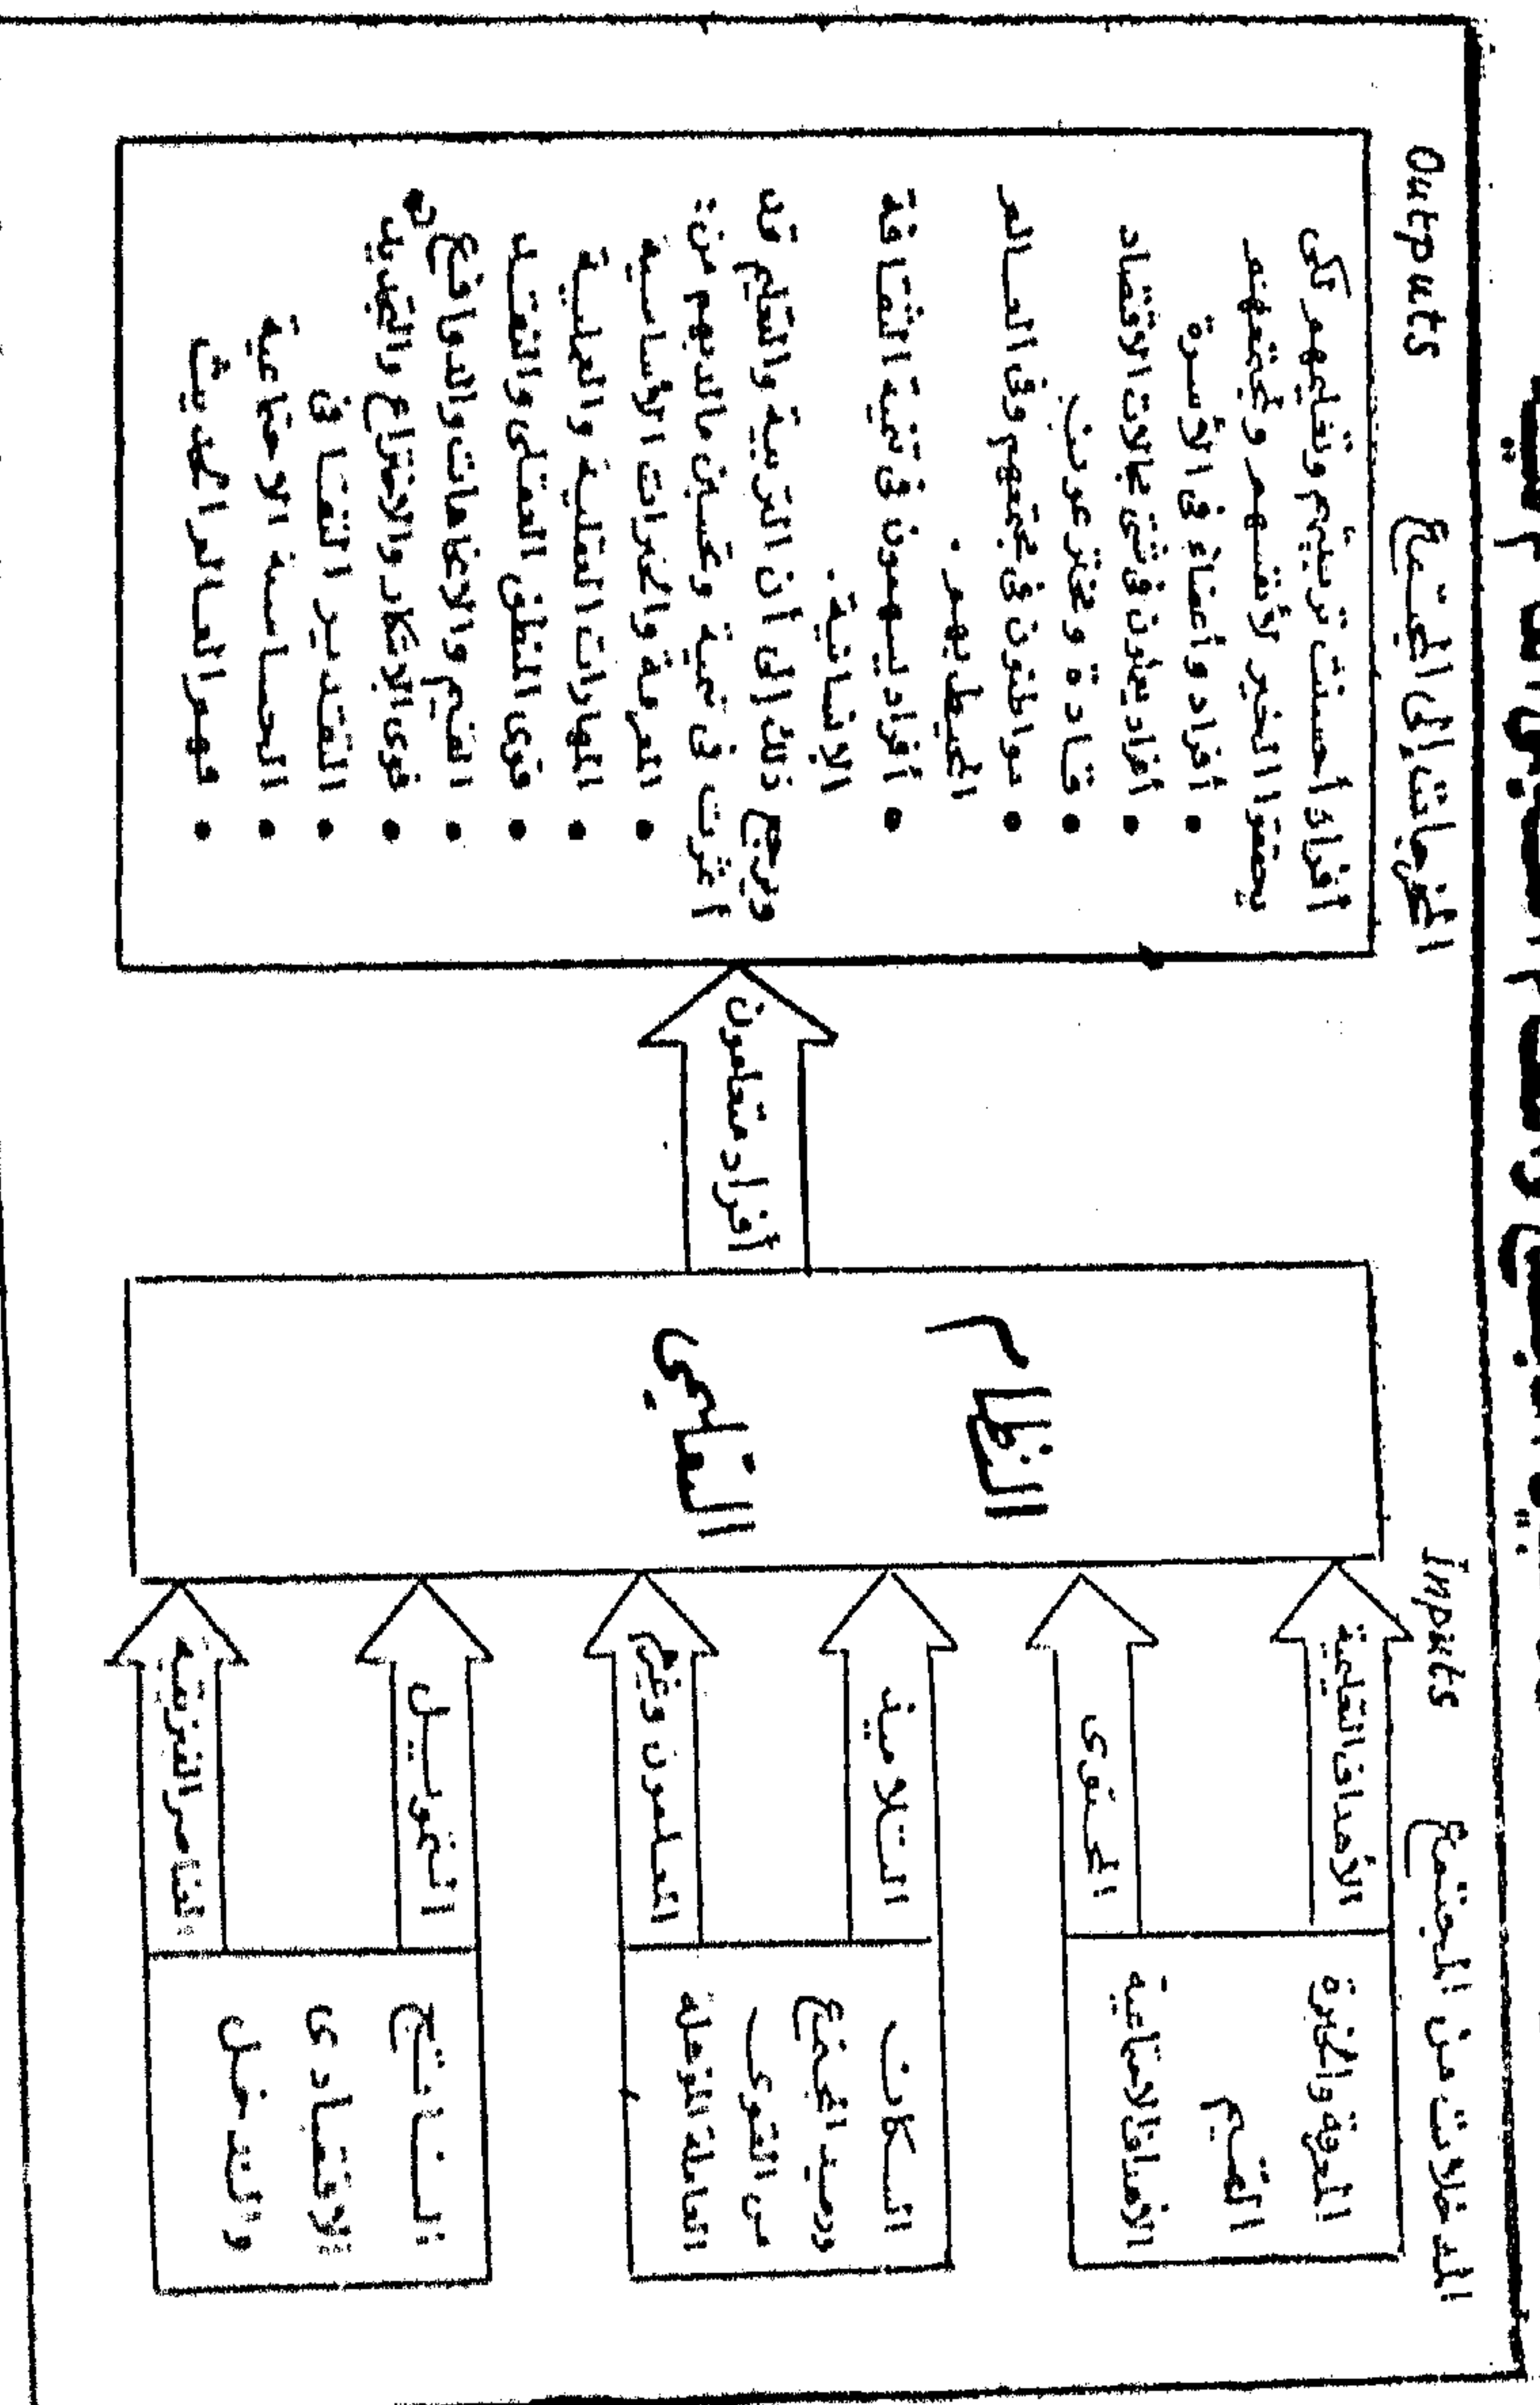 المدخلات من المجتمع Inputs
المعرفة والخبرة
القيم
الأهداف الاجتماعية
الأهداف التعليمية
المحتوى
السكان
ورصيد المجتمع
من القوى
العاملة المؤهلة
التلاميذ
المعلمون وغيرهم
الناتج
الاقتصادى
والتدخل
التمويل
العناصر الفيزيقية
النظام
التعليمى
أفراد متعلمون
المخرجات إلى المجتمع Outputs
أفراد أحسنت تربيتهم وتعليمهم لكى
يحققوا الخير لأنفسهم ولمجتمعهم
• أفراد وأعضاء فى الأسرة
• أفراد يعملون فى شتى مجالات الاقتصاد
• قادة ومخترعون
• مواطنون فى مجتمعهم وفى العالم
المحيط بهم .
• أفراد يسهمون فى تنمية الثقافة
الإنسانية .
ويرجع ذلك إلى أن التربية والتعليم قد
أثرت فى تنمية وتحسين مالديهم من :
• المعرفة والخبرات الأساسية
• المهارات العقلية والعملية
• قوى المنطق العقلى والنقد
• القيم والاتجاهات والدوافع
• قوى الابتكار والاختراع والتجديد
• التقدير الثقافى
• الحساسية الاجتماعية
• فهم العالم الحديث